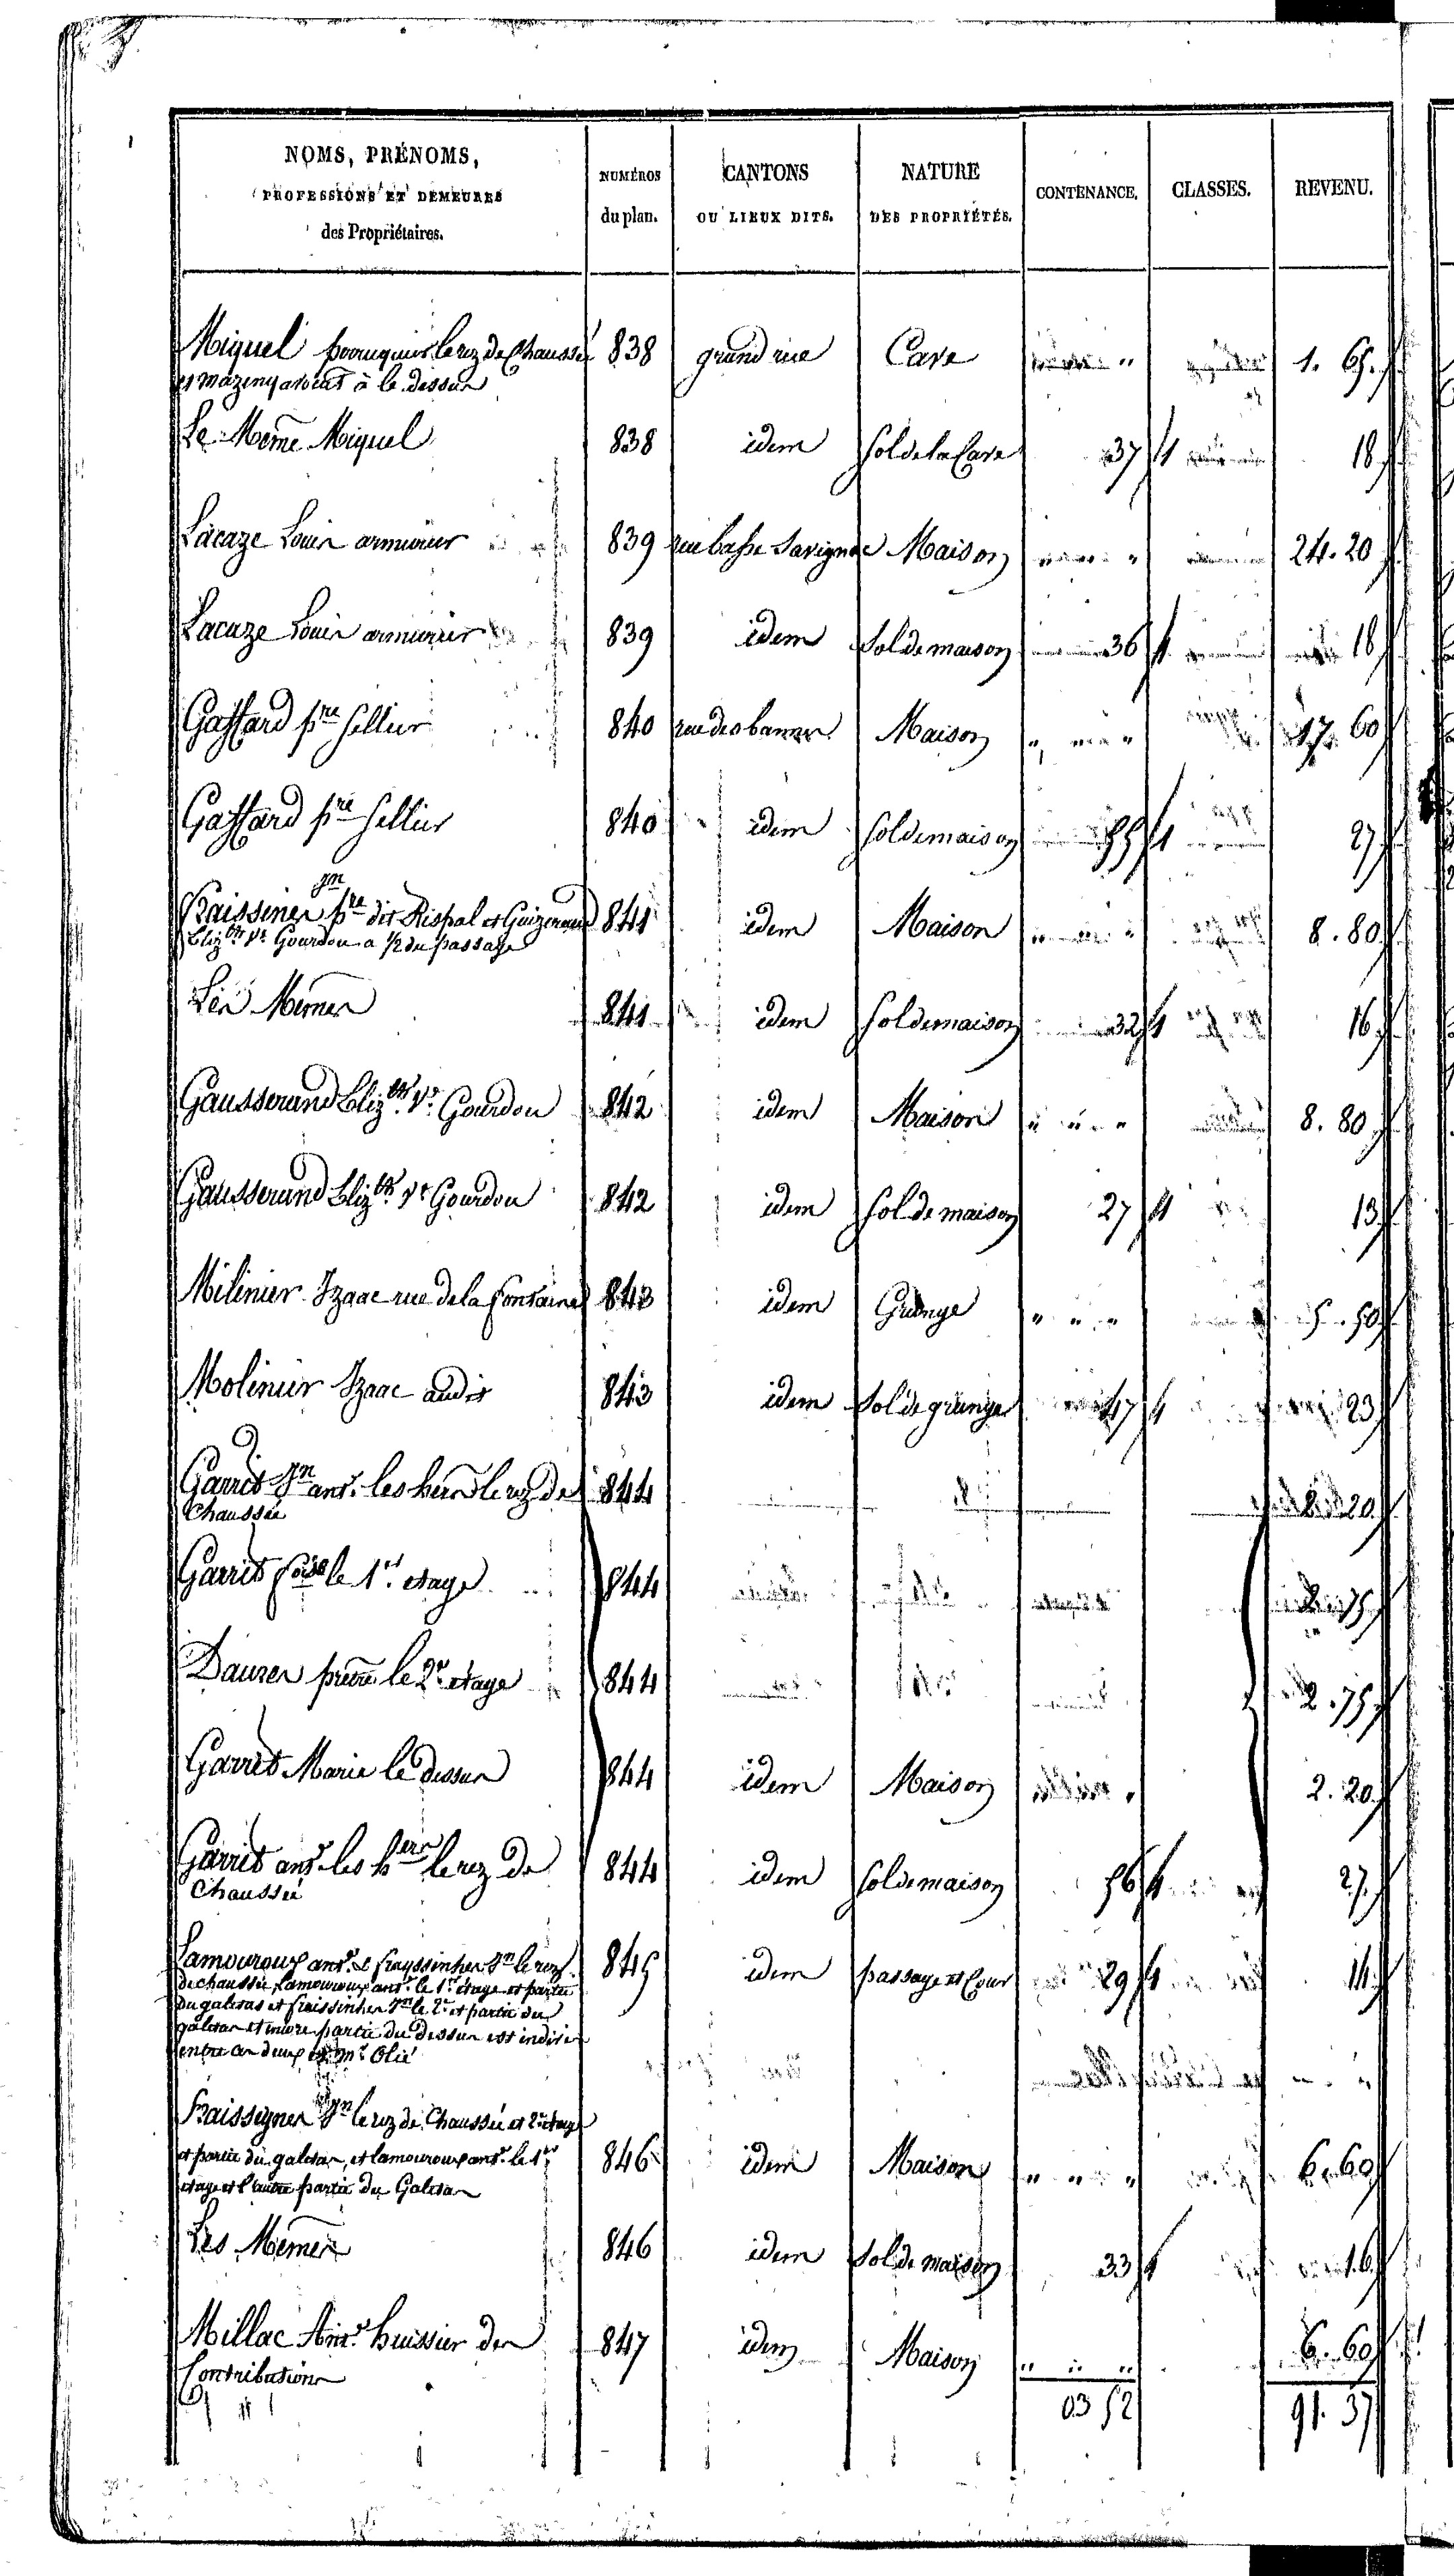 NOMS, PRÉNOMS, PROFESSIONS ET DEMEURES des Propriétaires. NUMÉROS du plan. CANTONS OU LIEUX DITS. NATURE DES PROPRIÉTÉS. CONTENANCE. CLASSES. REVENU.
Miquel perruquier le rez de Chaussée 838 grand rue Cave " 1. 65
et mazeny avocat à le dessus
Le Même Miquel 838 idem Sol de la Cave 37 1 18
Lacaze Louis armurier 839 rue basse Savignac Maison " 24. 20
Lacaze Louis armurier 839 idem Sol de maison 36 1 18
Gaffard pre Sellier 840 rue des Maison " " " 17. 60
Gaffard pre Sellier 840 idem Sol de maison 55 1 27
jn
pre dit Rispal et 841 idem Maison " " 8. 80
Elizth ve Gourdon a 1/2 du passage
Les Mêmes 841 idem Sol de maison 32 1 16
Gausserand Elizth ve Gourdon 842 idem Maison " " " 8. 80
Gausserand Elizth ve Gourdon 842 idem Sol de maison 27 1 13
Milinier Izaac rue de la fontaine 843 idem Grange " " " 5. 50
Molinier Izaac audit 843 idem Sol de grange 47 1 23
Garrit Jn ant. les hers le rez de 844 2. 20
Chaussée
Garrit foise le 1er etage 844 2. 75
Dauzes prêtre le 2e etage 844 2. 75
Garrit Marie le dessus 844 idem Maison " 2. 20
Garrit ant. les hers le rez de 844 idem Sol de maison 56 1 27
Chaussée
Lamouroux ant. & frayssinhes Jn le rez 845 idem passage et Cour 29 1 14
de chaussée Lamouroux ant. le 1er étage et partie
du galetas et fraissinhes Jn le 2e et partie du
galetas et encore partie du dessus est indivis
entre ces deux et Mr Olié
Fraissignes Jn le rez de Chaussée et 2e etage
et partie du galetas, et lamouroux ant. le 1er 846 idem Maison " " " 6. 60
etage et l'autre partie du Galetas
Les Mêmes 846 idem Sol de maison 33 1 16
Millac Ant. huissier des 847 idem Maison " " " 6. 60
Contributions
03 52 91. 37